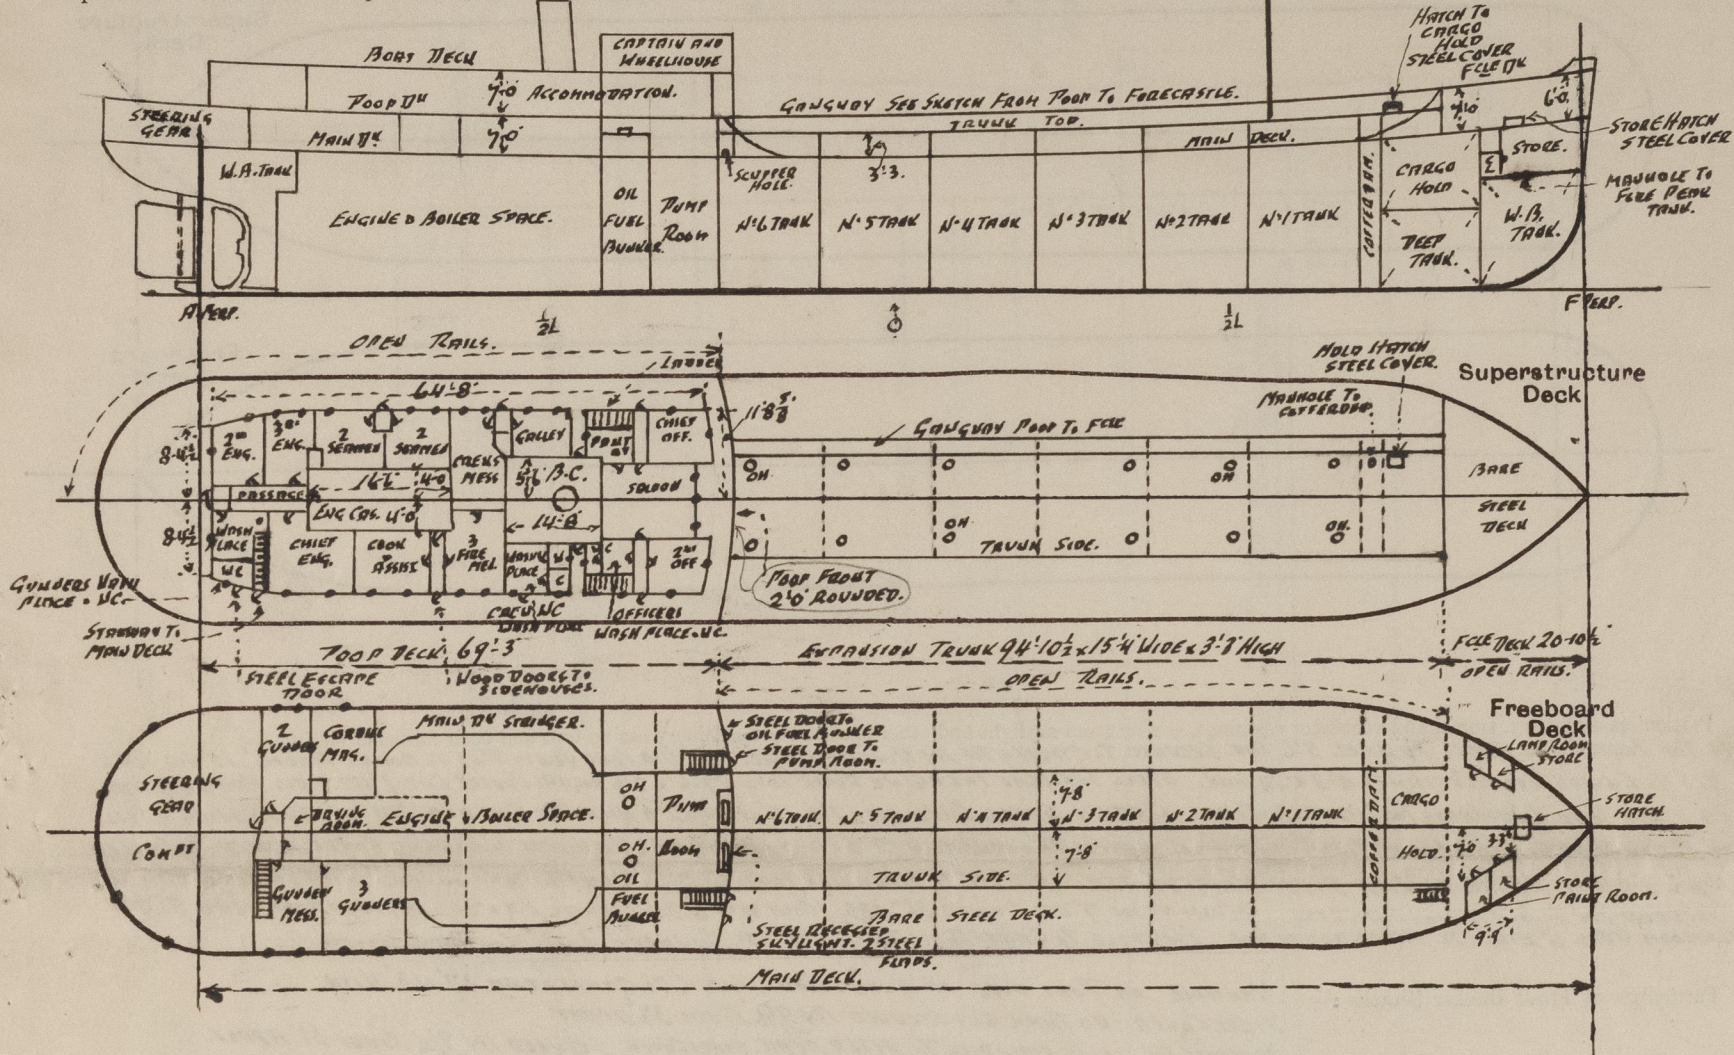 BOAT DECK
CAPTAIN AND
WHEELHOUSE
HATCH TO
CARGO
HOLD
STEEL COVER
FCLE DK
POOP DK
7'-0"
ACCOMMODATION.
GANGWAY SEE SKETCH FROM POOP TO FORECASTLE.
7'-0"
6'-0"
STEERING
GEAR
MAIN DK
7'-0"
TRUNK TOP.
MAIN DECK.
STORE HATCH
STEEL COVER
STORE.
W.B. TANK
SCUPPER
HOLE.
3'-3"
CARGO
HOLD
MANHOLE TO
FORE PEAK
TANK.
ENGINE & BOILER SPACE.
OIL
FUEL
BUNKER
PUMP
ROOM
No 6 TANK
No 5 TANK
No 4 TANK
No 3 TANK
No 2 TANK
No 1 TANK
COFFERDAM.
DEEP
TANK.
W.B.
TANK.
A PERP.
½L
½L
F PERP.
OPEN RAILS.
LADDER
HOLD HATCH
STEEL COVER.
Superstructure
Deck
64'-8"
11'-8⅝"
MANHOLE TO
COFFERDAM
GANGWAY POOP TO FCLE
8-4½
2ND
ENG.
3RD
ENG.
2
SEAMEN
2
SEAMEN
GALLEY
PANTRY
CHIEF
OFF.
CREWS
MESS
5'-6"
B.C.
SALOON
PASSAGE
4'-0
ENG CAS. 4'-0"
14'-8"
OH
OH
OH
OH.
BARE
STEEL
DECK
8-4½
WASH
PLACE
WC
CHIEF
ENG.
COOK
ASSIST.
3
FIRE
MEN.
WASH
PLACE
W
C
2ND
OFF
TRUNK SIDE.
POOP FRONT
2'-0" ROUNDED.
GUNNERS WASH
PLACE & WC.
CREW WC
WASH PLACE
OFFICERS
WASH PLACE & WC.
STAIRWAY TO
MAIN DECK
POOP DECK 69'-3"
EXPANSION TRUNK 94'-10½ x 15'-4" WIDE x 3'-3" HIGH
FCLE DECK 20-10½"
OPEN RAILS.
STEEL ESCAPE
DOOR
WOOD DOORS TO
SIDEHOUSES.
OPEN RAILS.
Freeboard
Deck
2
GUNNERS
CORDITE
MAG.
MAIN DK STRINGER.
STEEL DOOR TO
OIL FUEL BUNKER
STEEL DOOR TO
PUMP ROOM.
LAMP ROOM
STORE
STEERING
GEAR
COMPT
DRYING
ROOM.
ENGINE & BOILER SPACE.
OH
PUMP
ROOM
7'-8"
7'-8"
No 6 TANK
No 5 TANK
No 4 TANK
No 3 TANK
No 2 TANK
No 1 TANK
COFFERDAM.
CARGO
HOLD.
STORE
HATCH.
7'-0"
3'-3"
OH.
OIL
FUEL
BUNKER
GUNNERS
MESS.
3
GUNNERS
TRUNK SIDE.
BARE STEEL DECK.
STORE
PAINT ROOM.
9'-9"
STEEL RECESSED
SKYLIGHT. 2 STEEL
FLAPS.
MAIN DECK.